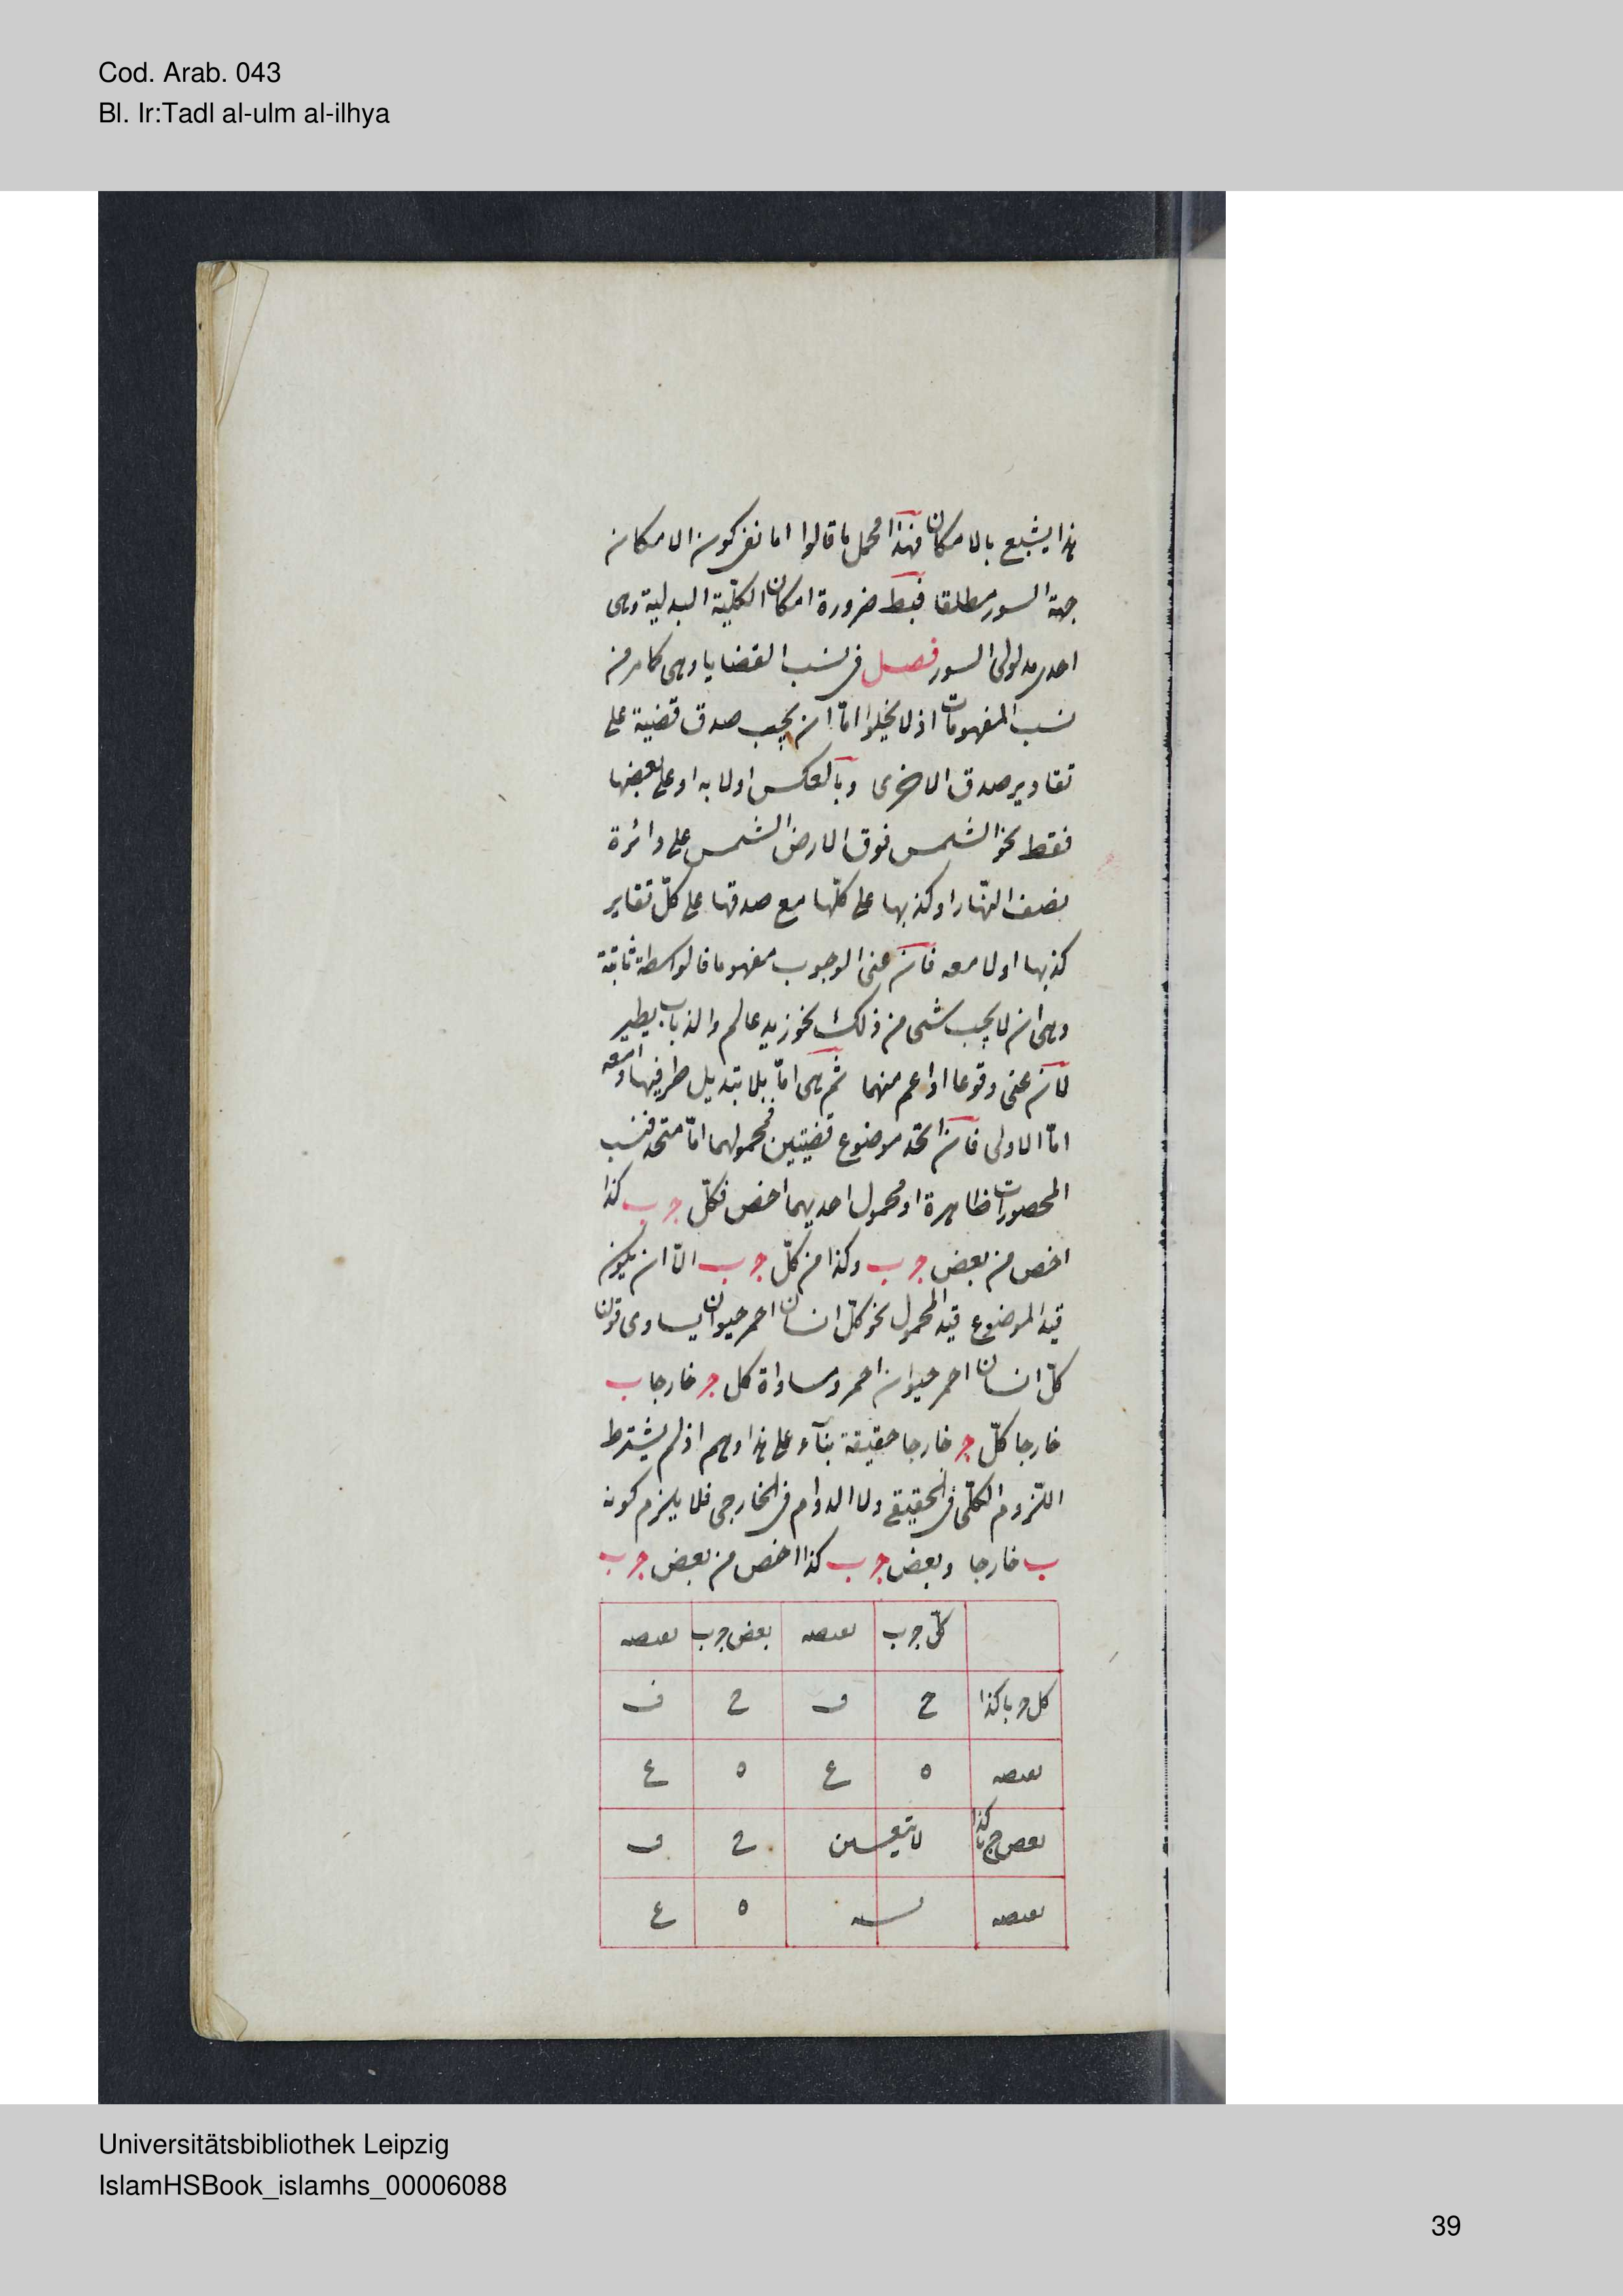 Cod. Arab. 043
Bl. Ir:Tadl al-ulm al-ilhya
هذا يشبع بالامكان فهذا محمل ما قالوا اما نفى كون الامكان
جهة السور مطلقا فبط ضرورة امكان الكلّية البدلية وهى
احدى مدلولى السور فصل فى نسب القضايا وهى كما مر من
نسب المفهومات اذ لا يخلوا امّا ان يجب صدق قضية على
تقادير صدق الاخرى وبالعكس اولا به او على بعضها
فقط نحو الشمس فوق الارض الشمس على دائرة
نصف النّهار او كذبها على كلّها مع صدقها على كلّ تقاير
كذبها اولا معه فان عنى الوجوب مفهوما فالواسطة ثابتة
وهى ان لا يجب شى من ذلك نحو زيد عالم والذباب يطير
لا ان عنى وقوعا او اعم منهما ثم هى امّا بلا تبديل طرفيها او معه
امّا الاولى فان اتحد موضوع قضيتين فمحمولهما امّا متحد فنسب
المحصورات ظاهرة او محمول احديهما اخص فكلّ ج ب كذا
اخص من بعض ج ب وكذا من كلّ ج ب الّا ان يكون
قيد الموضوع قيد المحمول نحو كلّ انسان احمر حيوان يساوى قولنا
كلّ انسان احمر حيوان احمر ومساواة كل ج خارجا ب
خارجا كلّ ج خارجا حقيقة بنآء على هذا وهم اذ لم يشترط
اللّزوم الكلّى فى الحقيقى ولا الدوام فى الخارجى فلا يلزم كون
ب خارجا وبعض ج ب كذا اخص من بعض ج ب
كلّ ج ب بعضه بعض ج ب بعضه
كل ج ب كذا ح ف ح ف
بعضه ه ع ه ع
بعض ج ب كذا لا يتعين ح ف
بعضه ه ع
Universitätsbibliothek Leipzig
IslamHSBook_islamhs_00006088
39